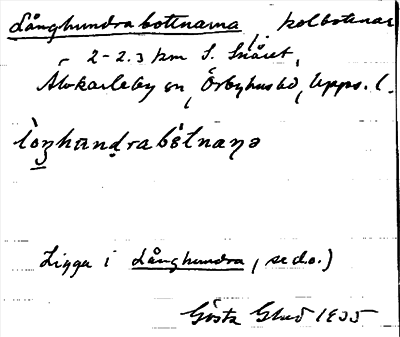 Långhundrabottnarna, kolbottnar
2-2.3 km S. Snåret,
Älvkarleby sn, Örbyhus hd, Upps. l.
lòŋhundrabòtnaṇə
Ligga i Långhundra, se d.o.)
Gösta 1935